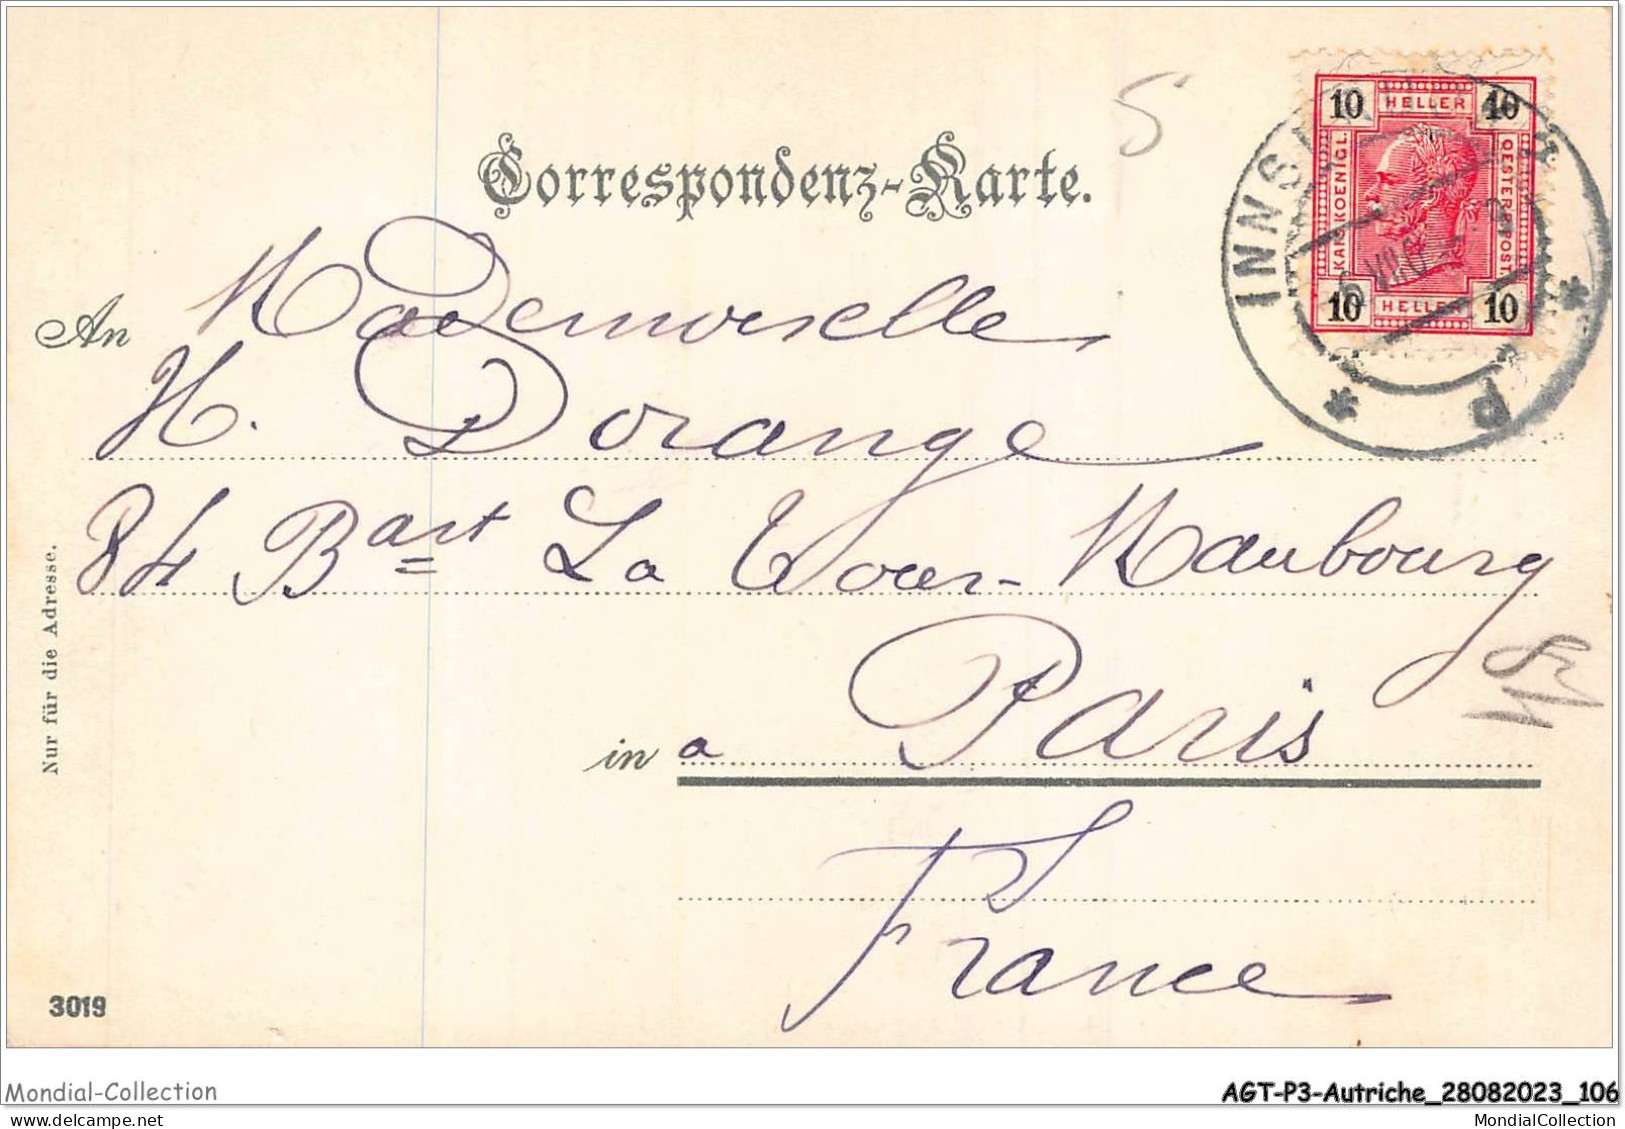 Correspondenz-Karte.
10 HELLER 10
KAIS. KOENIGL.
OESTERR. POST
10 HELLER 10
An Mademoiselle
H. Dorange
84 Bart La Tour-Maubourg
in a Paris
France
Nur für die Adresse.
3019
Mondial-Collection
AGT-P3-Autriche_28082023_106
MondialCollection